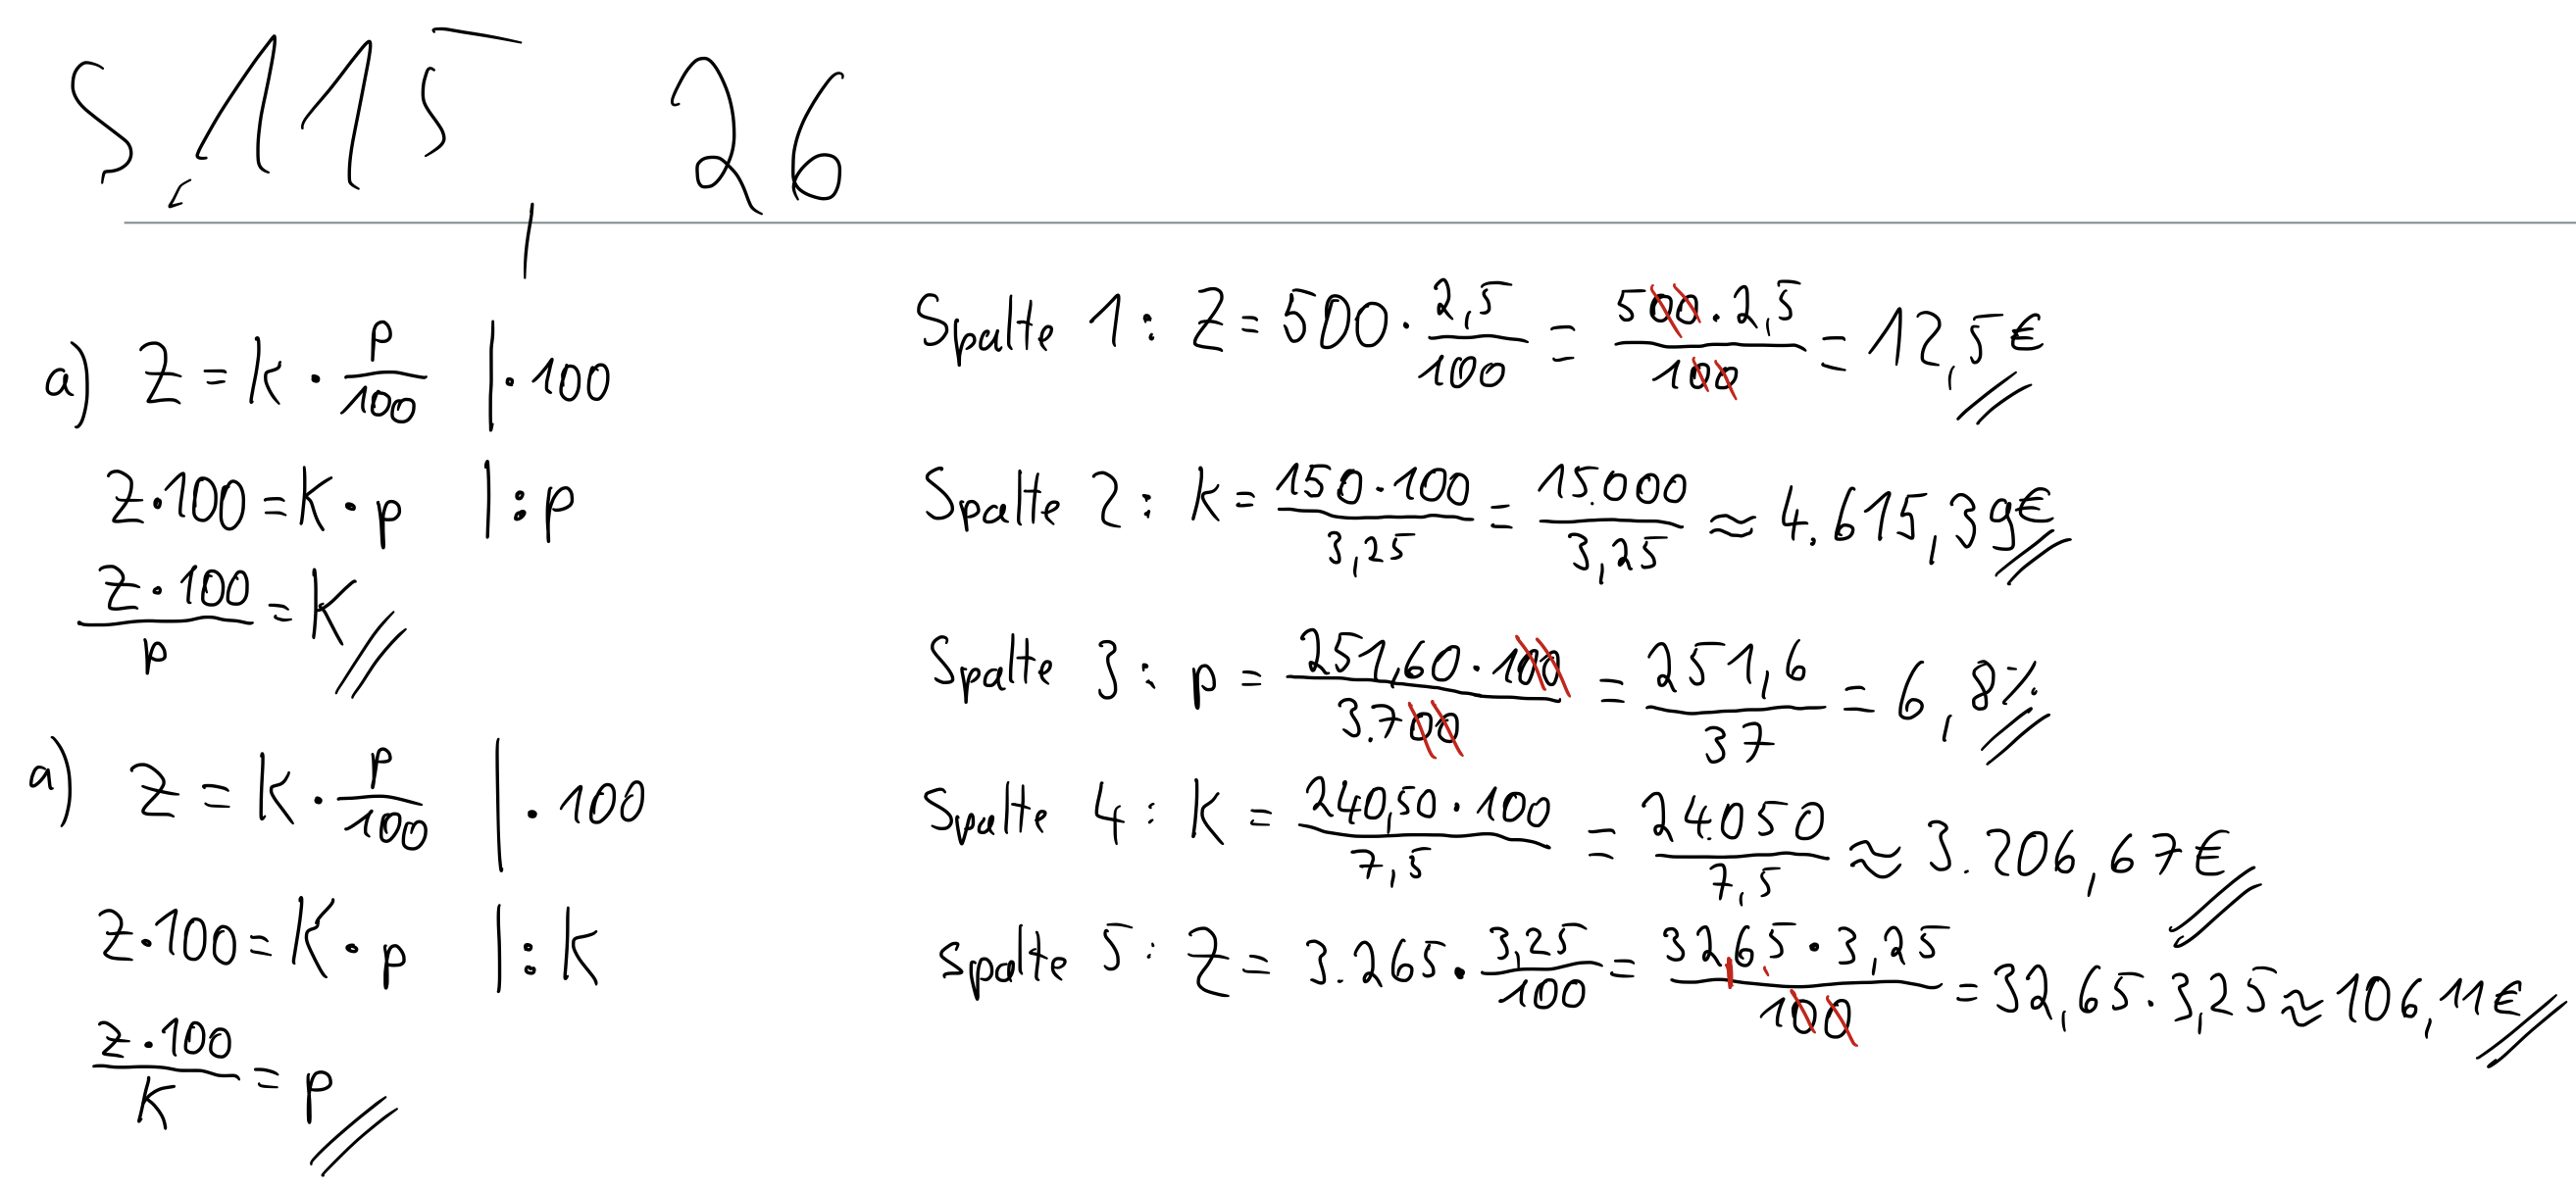 S. 115 26
a) Z = K · p/100 | · 100
Z · 100 = K · p | : p
Z · 100 / p = K
a) Z = K · p/100 | · 100
Z · 100 = K · p | : K
Z · 100 / K = p
Spalte 1 : Z = 500 · 2,5/100 = 500 · 2,5 / 100 = 12,5 €
Spalte 2 : K = 150 · 100 / 3,25 = 15.000 / 3,25 ≈ 4.615,39 €
Spalte 3 : p = 251,60 · 100 / 3.700 = 251,6 / 37 = 6,8 %
Spalte 4 : K = 240,50 · 100 / 7,5 = 24.050 / 7,5 ≈ 3.206,67 €
Spalte 5 : Z = 3.265 · 3,25/100 = 3265 · 3,25 / 100 = 32,65 · 3,25 ≈ 106,11 €